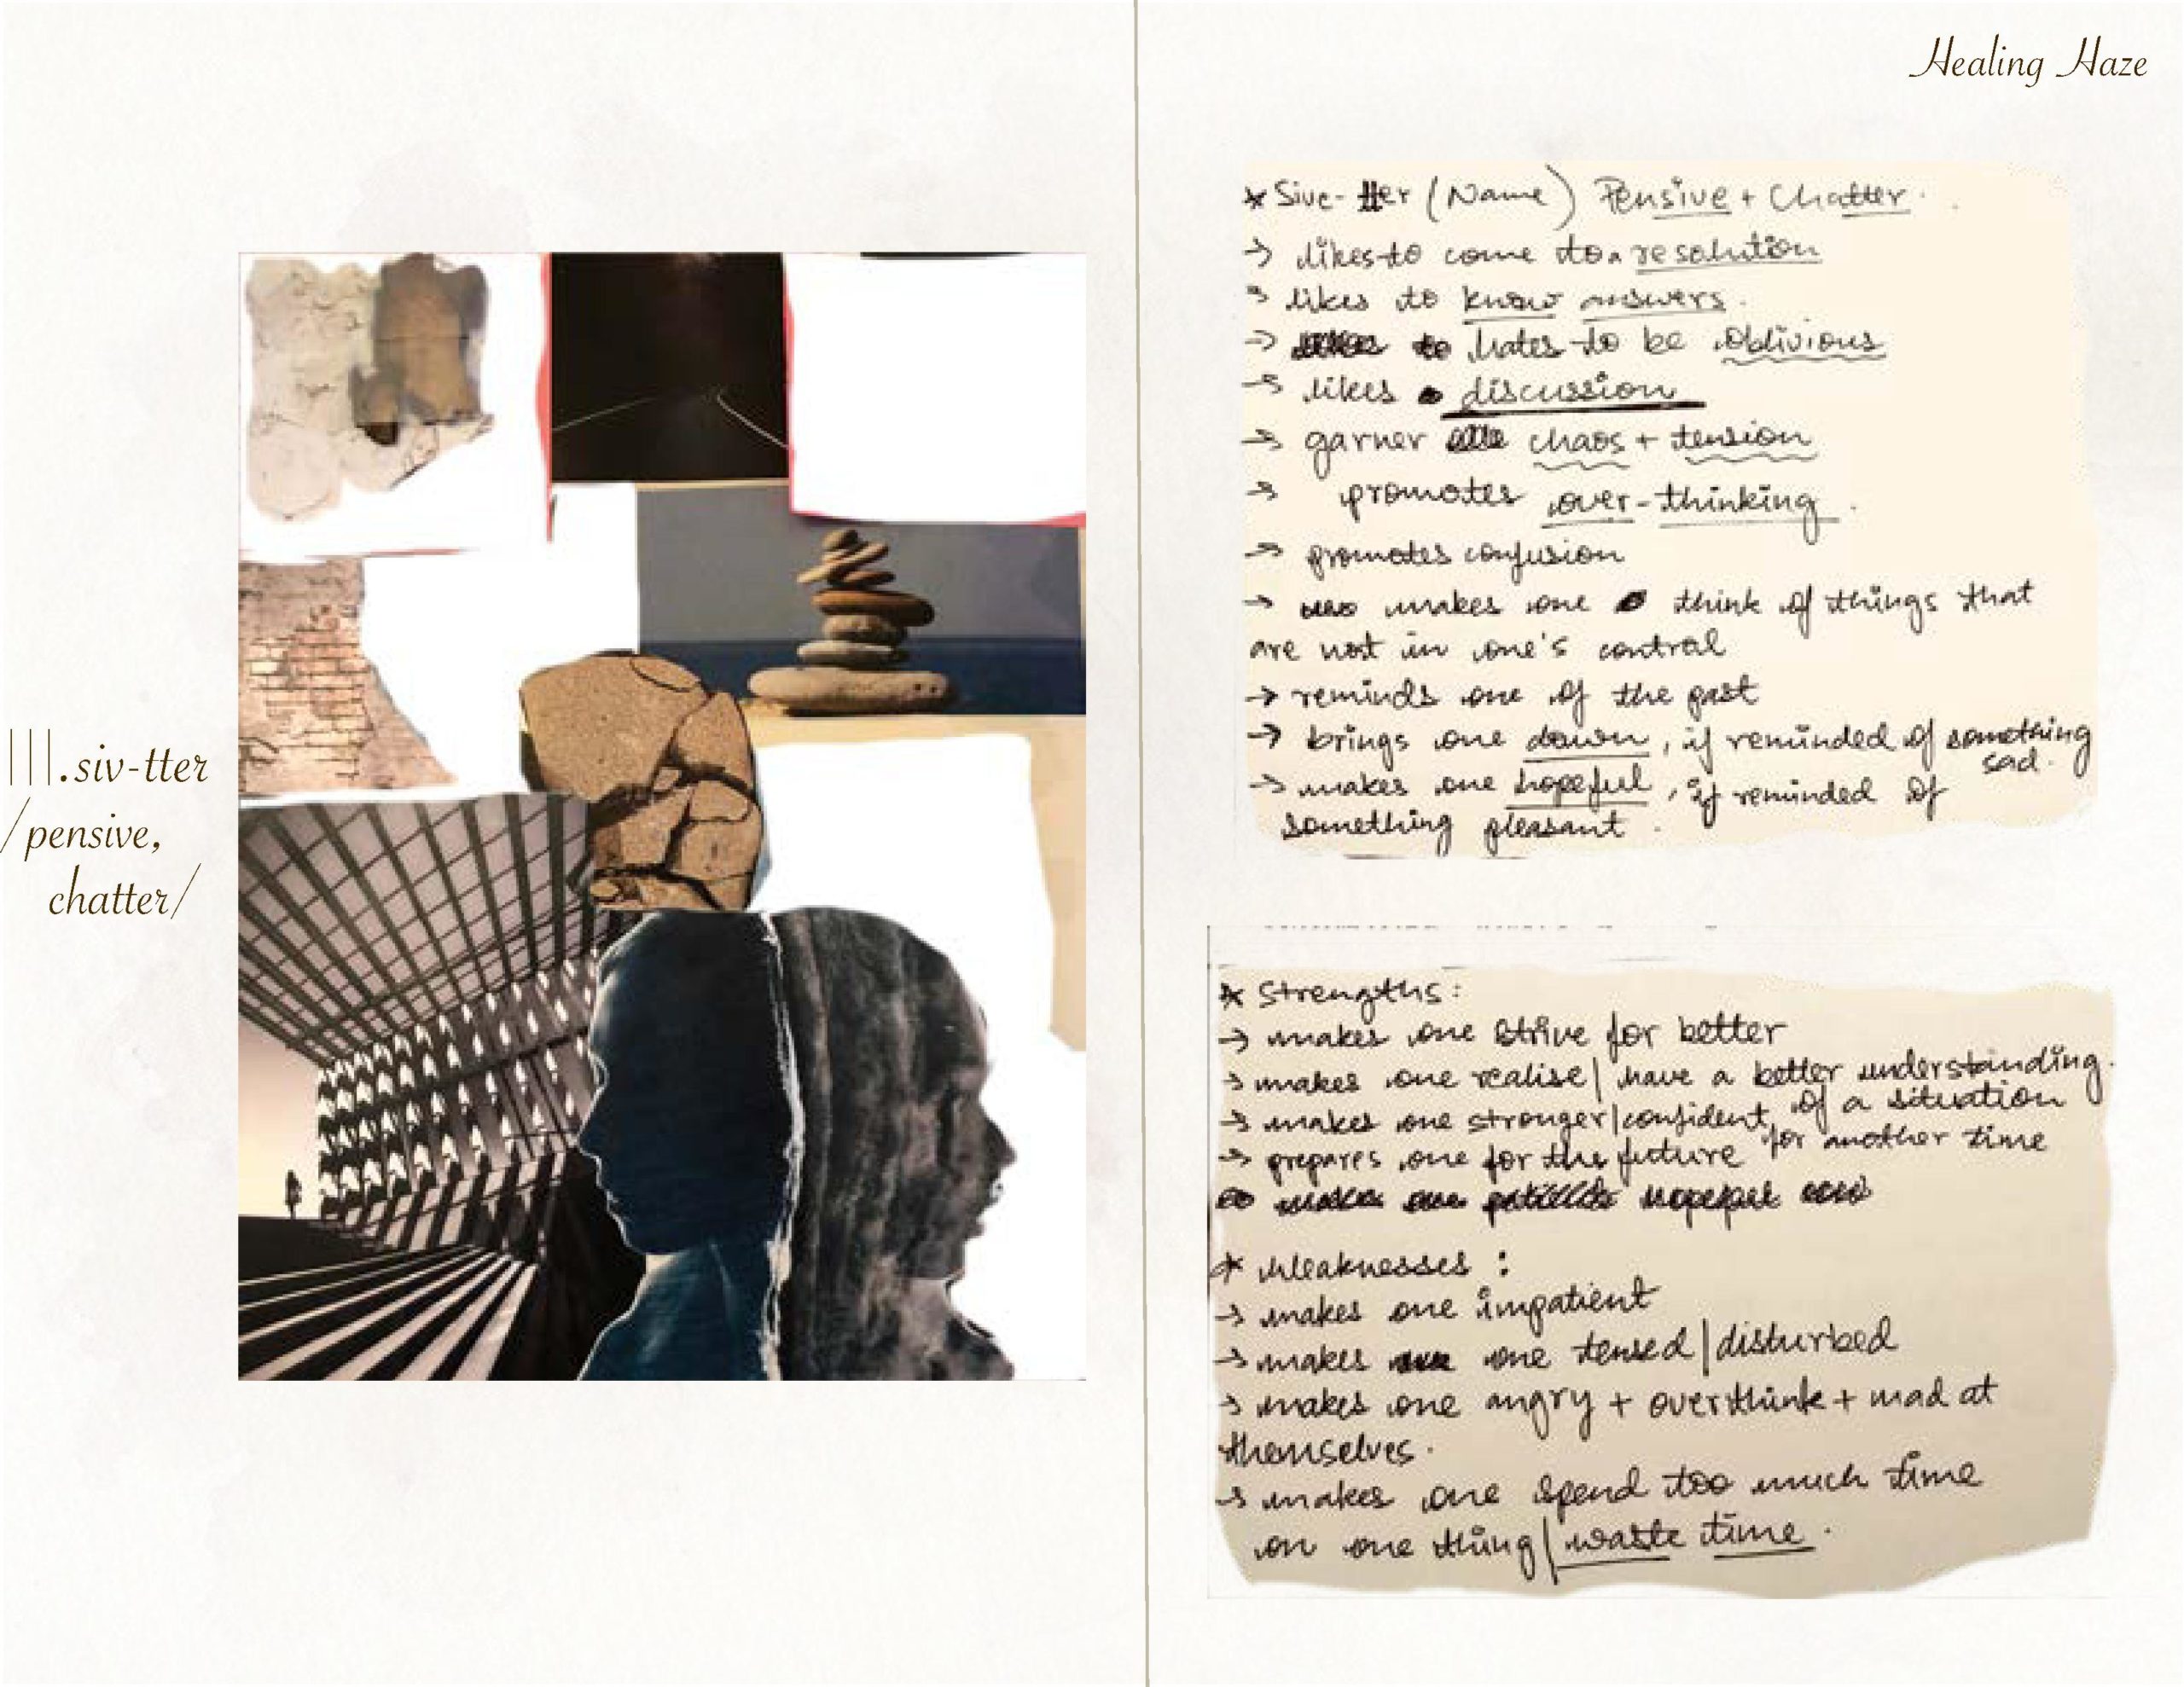 Healing Haze
|||.siv-tter
/pensive,
chatter/
* Sive-tter (Name) Pensive + Chatter.
→ likes to come to a resolution
→ likes to know answers.
→ to hates to be oblivious
→ likes discussion
→ garner chaos + tension
→ promotes over-thinking.
→ promotes confusion
→ makes one think of things that
are not in one's control
→ reminds one of the past
→ brings one down, if reminded of something
sad.
→ makes one hopeful, if reminded of
something pleasant.
* Strengths:
→ makes one strive for better
→ makes one realise/ have a better understanding.
of a situation
→ makes one stronger/confident, for another time
→ prepares one for the future
* Weaknesses:
→ makes one impatient
→ makes one tensed/disturbed
→ makes one angry + overthink + mad at
themselves.
→ makes one spend too much time
on one thing/waste time.